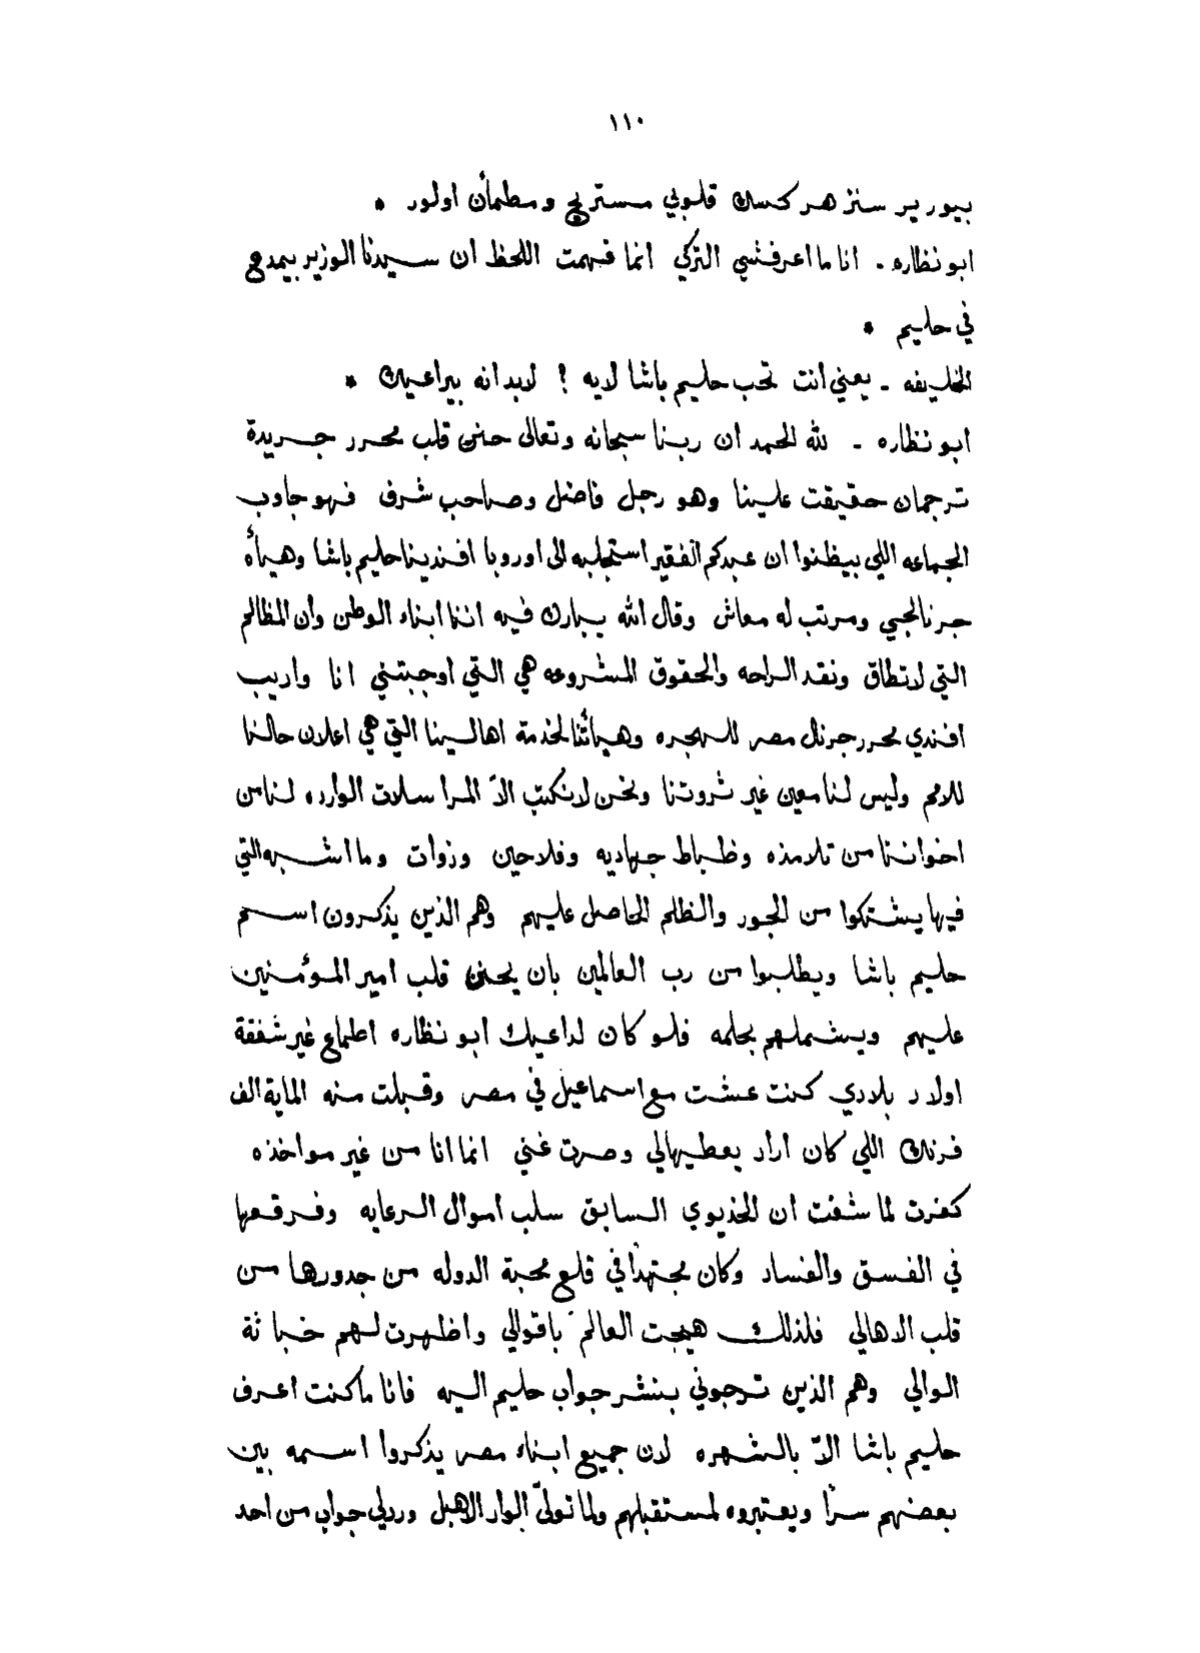 ١١٠
بيورير سنز هر كسك قلوبي مستريح ومطمأن اولور *
ابو نظاره - انا ما اعرفشي التركي انما فهمت اللحظ ان سيدنا الوزير بيمدح
في حليم *
الخليفه - يعني انت تحب حليم باشا لايه ؟ لابد انه بيراعيك *
ابو نظاره - لله الحمد ان ربنا سبحانه وتعالى حنن قلب محرر جريدة
ترجمان حقيقت علينا وهو رجل فاضل وصاحب شرف فهو جاوب
الجماعه اللي بيظنوا ان عبدكم الفقير استجلبه الى اوروبا افندينا حليم باشا وهيأه
جرنالجي ومرتب له معاش وقال الله يبارك فيه اننا ابناء الوطن وان المظالم
التي لاتطاق ونقد الراحه والحقوق المشروعه هي التي اوجبتني انا واديب
افندي محرر جرنال مصر للهجره وهيأتنا لخدمة اهالينا التي هي اعلان حالنا
للامم وليس لنا معين غير ثروتنا ونحن لانكتب الاّ المراسلات الوارده لنا من
اخواننا من تلامذه وظباط جهاديه وفلاحين وزوات وما اشبه التي
فيها يشتكوا من الجور والظلم الحاصل عليهم وهم الذين يذكرون اسم
حليم باشا ويطلبوا من رب العالمين بان يحنن قلب امير المؤمنين
عليهم ويشملهم بحلمه فلو كان لداعيك ابو نظاره اطماع غير شفقة
اولاد بلادي كنت عشت مع اسماعيل في مصر وقبلت منه الماية الف
فرنك اللي كان اراد يعطيهالي وصرت غني انما انا من غير مواخذه
كفرت لما شفت ان الخديوي السابق سلب اموال الرعايه وفرقعها
في الفسق والفساد وكان مجتهداً في قلع محبة الدوله من جدورها من
قلب الاهالي فلذلك هيجت العالم باقوالي واظهرت لهم خباثة
الوالي وهم الذين ترجوني بنشر جواب حليم اليه فانا ما كنت اعرف
حليم باشا الاّ بالشهره لان جميع ابناء مصر يذكروا اسمه بين
بعضهم سراً ويعتبروه لمستقبلهم ولما تولىّ الوار الاهبل وردلي جواب من احد